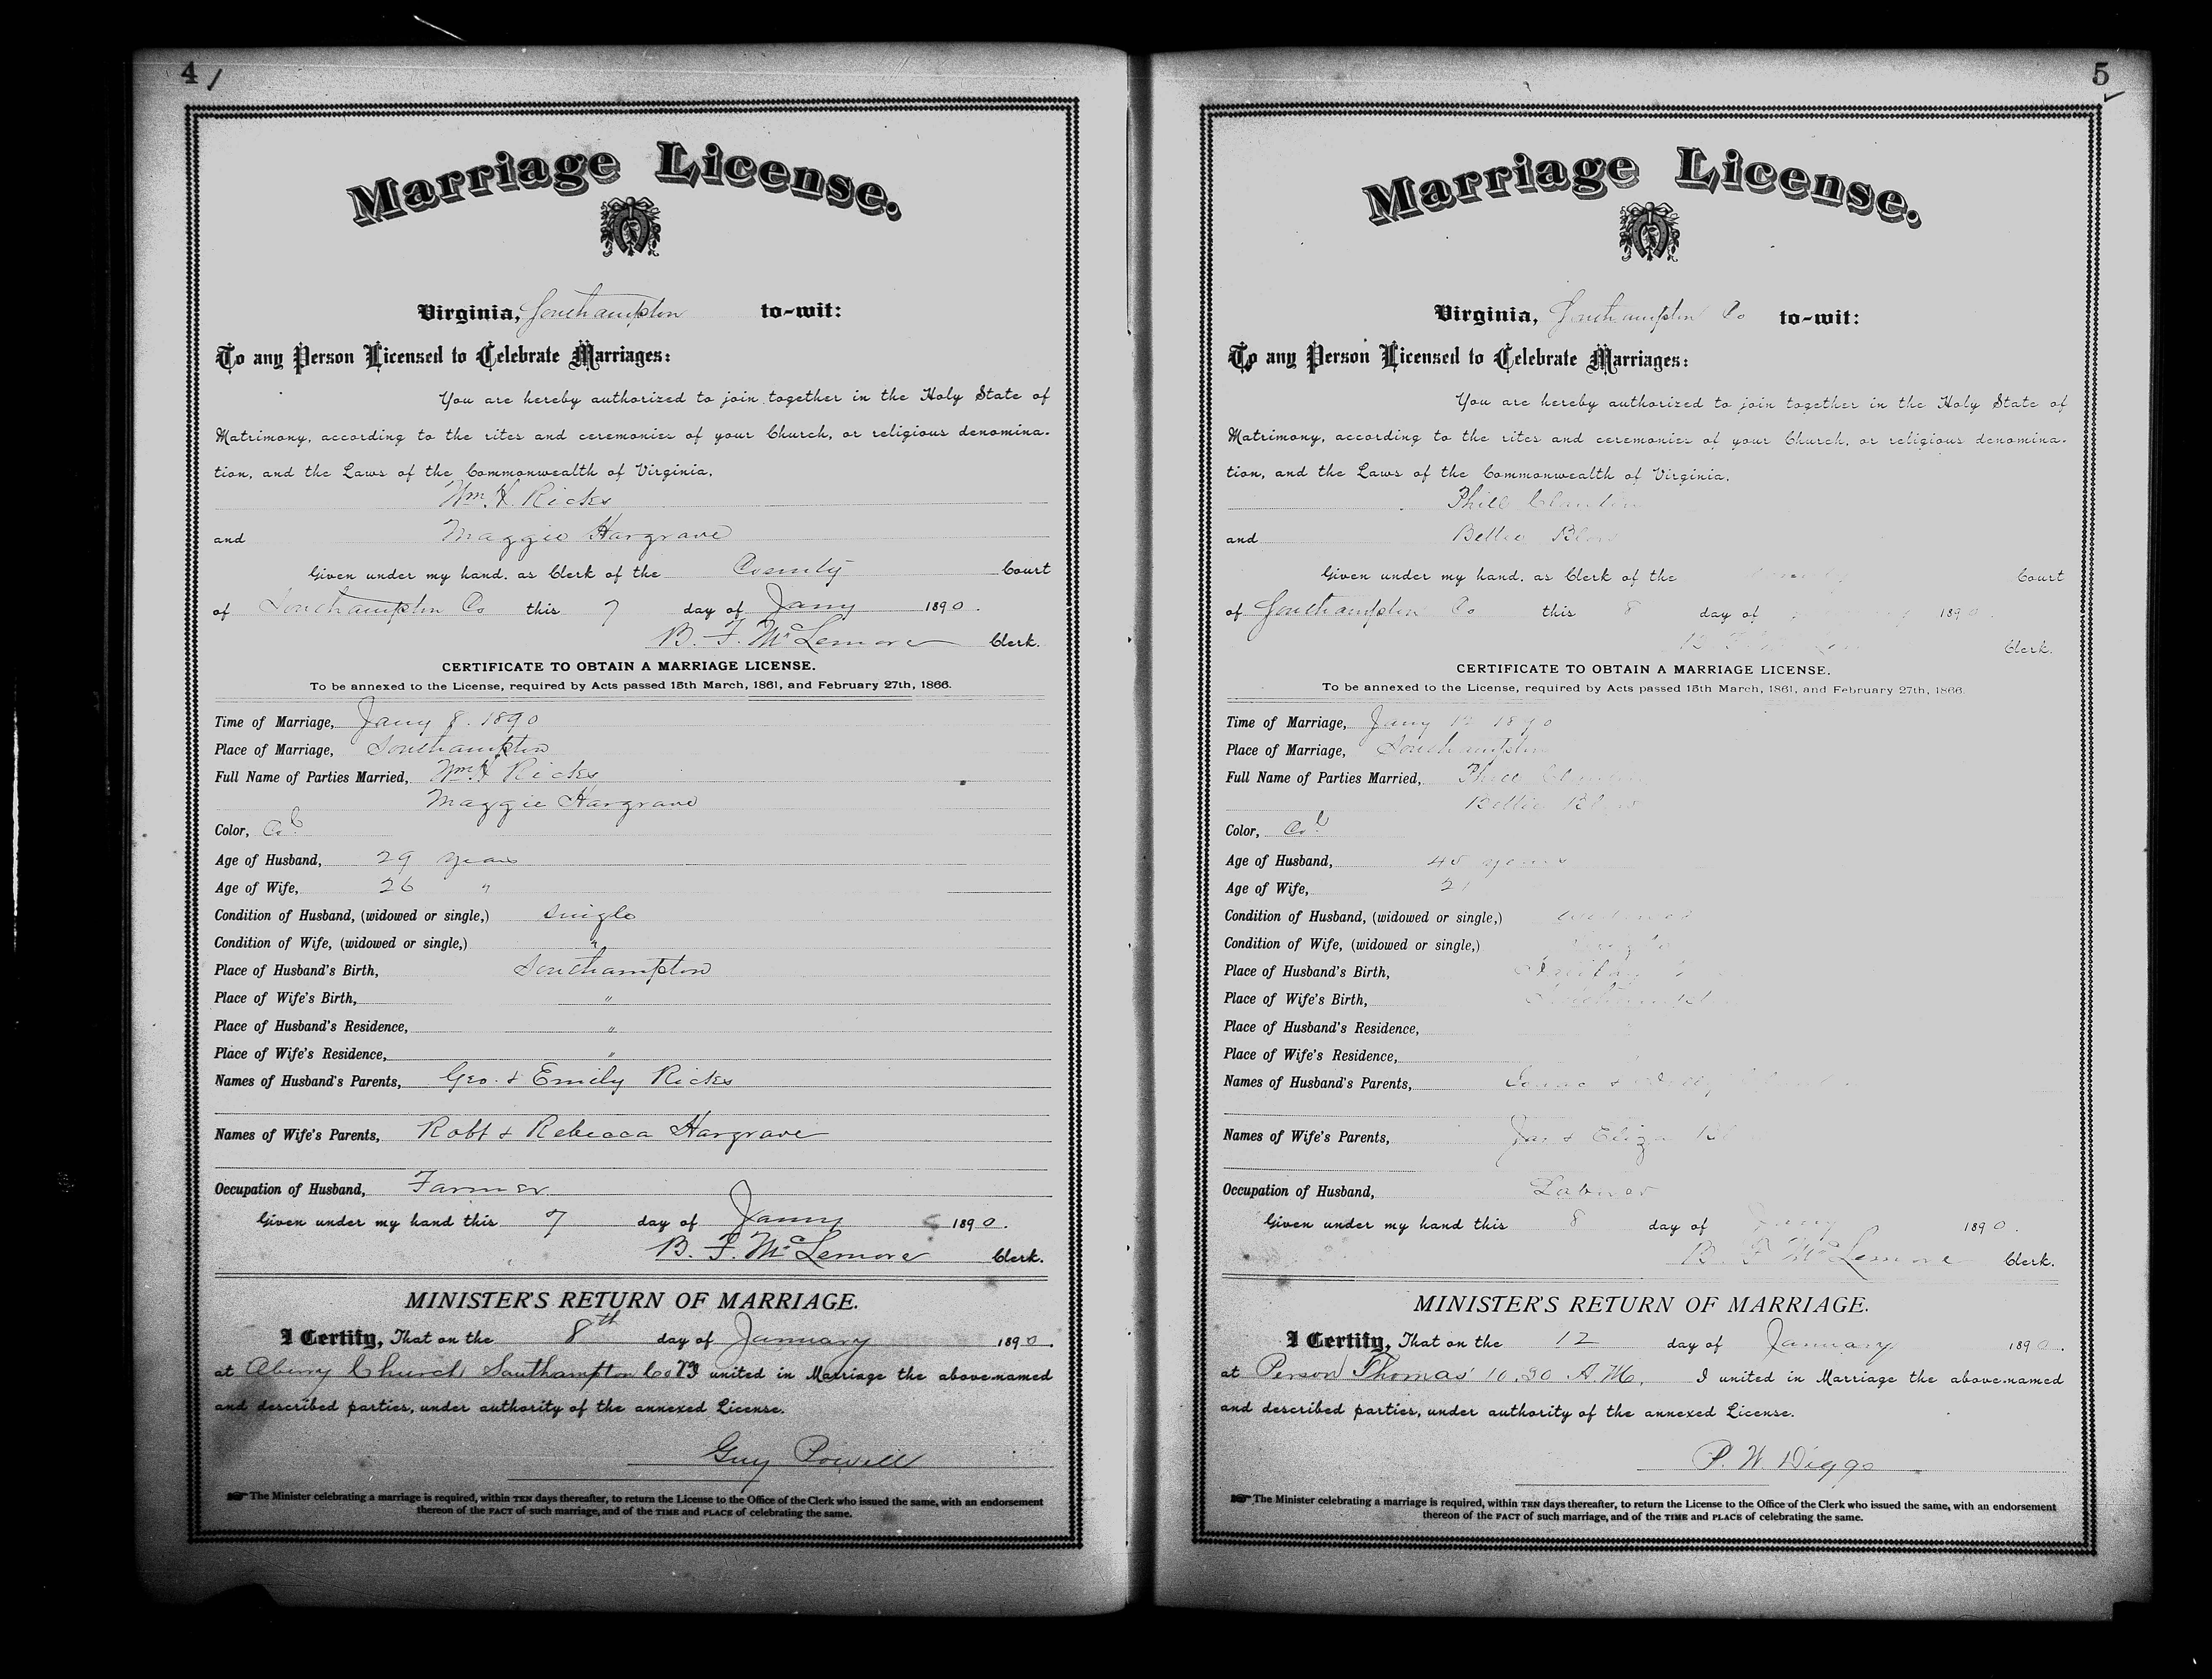 4
Marriage License.
Virginia, Southampton to-wit:
To any Person Licensed to Celebrate Marriages:
You are hereby authorized to join together in the Holy State of
Matrimony, according to the rites and ceremonies of your Church, or religious denomina-
tion, and the Laws of the Commonwealth of Virginia.
Wm. H. Ricks
and Maggie Hargrave
Given under my hand, as Clerk of the County Court
of Southampton Co this 7 day of Jany 1890.
B. F. McLemore Clerk.
CERTIFICATE TO OBTAIN A MARRIAGE LICENSE.
To be annexed to the License, required by Acts passed 15th March, 1861, and February 27th, 1866.
Time of Marriage, Jany 8. 1890
Place of Marriage, Southampton
Full Name of Parties Married, Wm H Ricks
Maggie Hargrave
Color, Col
Age of Husband, 29 years
Age of Wife, 26 "
Condition of Husband, (widowed or single,) single
Condition of Wife, (widowed or single,) "
Place of Husband's Birth, Southampton
Place of Wife's Birth, "
Place of Husband's Residence, "
Place of Wife's Residence, "
Names of Husband's Parents, Geo. & Emily Ricks
Names of Wife's Parents, Robt & Rebecca Hargrave
Occupation of Husband, Farmer
Given under my hand this 7 day of Jany 1890.
B. F. McLemore Clerk.
MINISTER'S RETURN OF MARRIAGE.
I Certify, That on the 8th day of January 1890.
at Church Southampton Co united in Marriage the above-named
and described parties, under authority of the annexed License.
Guy Powell
The Minister celebrating a marriage is required, within TEN days thereafter, to return the License to the Office of the Clerk who issued the same, with an endorsement
thereon of the FACT of such marriage, and of the TIME and PLACE of celebrating the same.
5
Marriage License.
Virginia, Southampton Co to-wit:
To any Person Licensed to Celebrate Marriages:
You are hereby authorized to join together in the Holy State of
Matrimony, according to the rites and ceremonies of your Church, or religious denomina-
tion, and the Laws of the Commonwealth of Virginia.
Phill
and Bettie Blow
Given under my hand, as Clerk of the County Court
of Southampton Co this 8 day of 1890.
Clerk.
CERTIFICATE TO OBTAIN A MARRIAGE LICENSE.
To be annexed to the License, required by Acts passed 15th March, 1861, and February 27th, 1866.
Time of Marriage, Jany 12 1890
Place of Marriage, Southampton
Full Name of Parties Married, Phill
Bettie Blow
Color, Col
Age of Husband, 45 years
Age of Wife, 21
Condition of Husband, (widowed or single,) widowed
Condition of Wife, (widowed or single,) Single
Place of Husband's Birth,
Place of Wife's Birth, Southampton
Place of Husband's Residence,
Place of Wife's Residence,
Names of Husband's Parents, Isaac &
Names of Wife's Parents, Jas & Eliza
Occupation of Husband, Laborer
Given under my hand this 8 day of Jany 1890.
B. F. McLemore Clerk.
MINISTER'S RETURN OF MARRIAGE.
I Certify, That on the 12 day of January 1890.
at Person Thomas' 10.30 A.M. I united in Marriage the above-named
and described parties, under authority of the annexed License.
P. W. Diggs
The Minister celebrating a marriage is required, within TEN days thereafter, to return the License to the Office of the Clerk who issued the same, with an endorsement
thereon of the FACT of such marriage, and of the TIME and PLACE of celebrating the same.